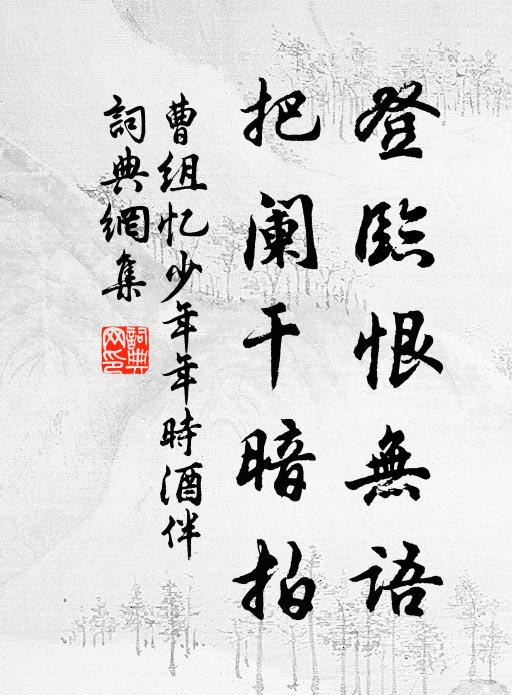 登臨恨無語
把阑干暗拍
曹组忆少年年時酒伴
詞典網集
詞典網印